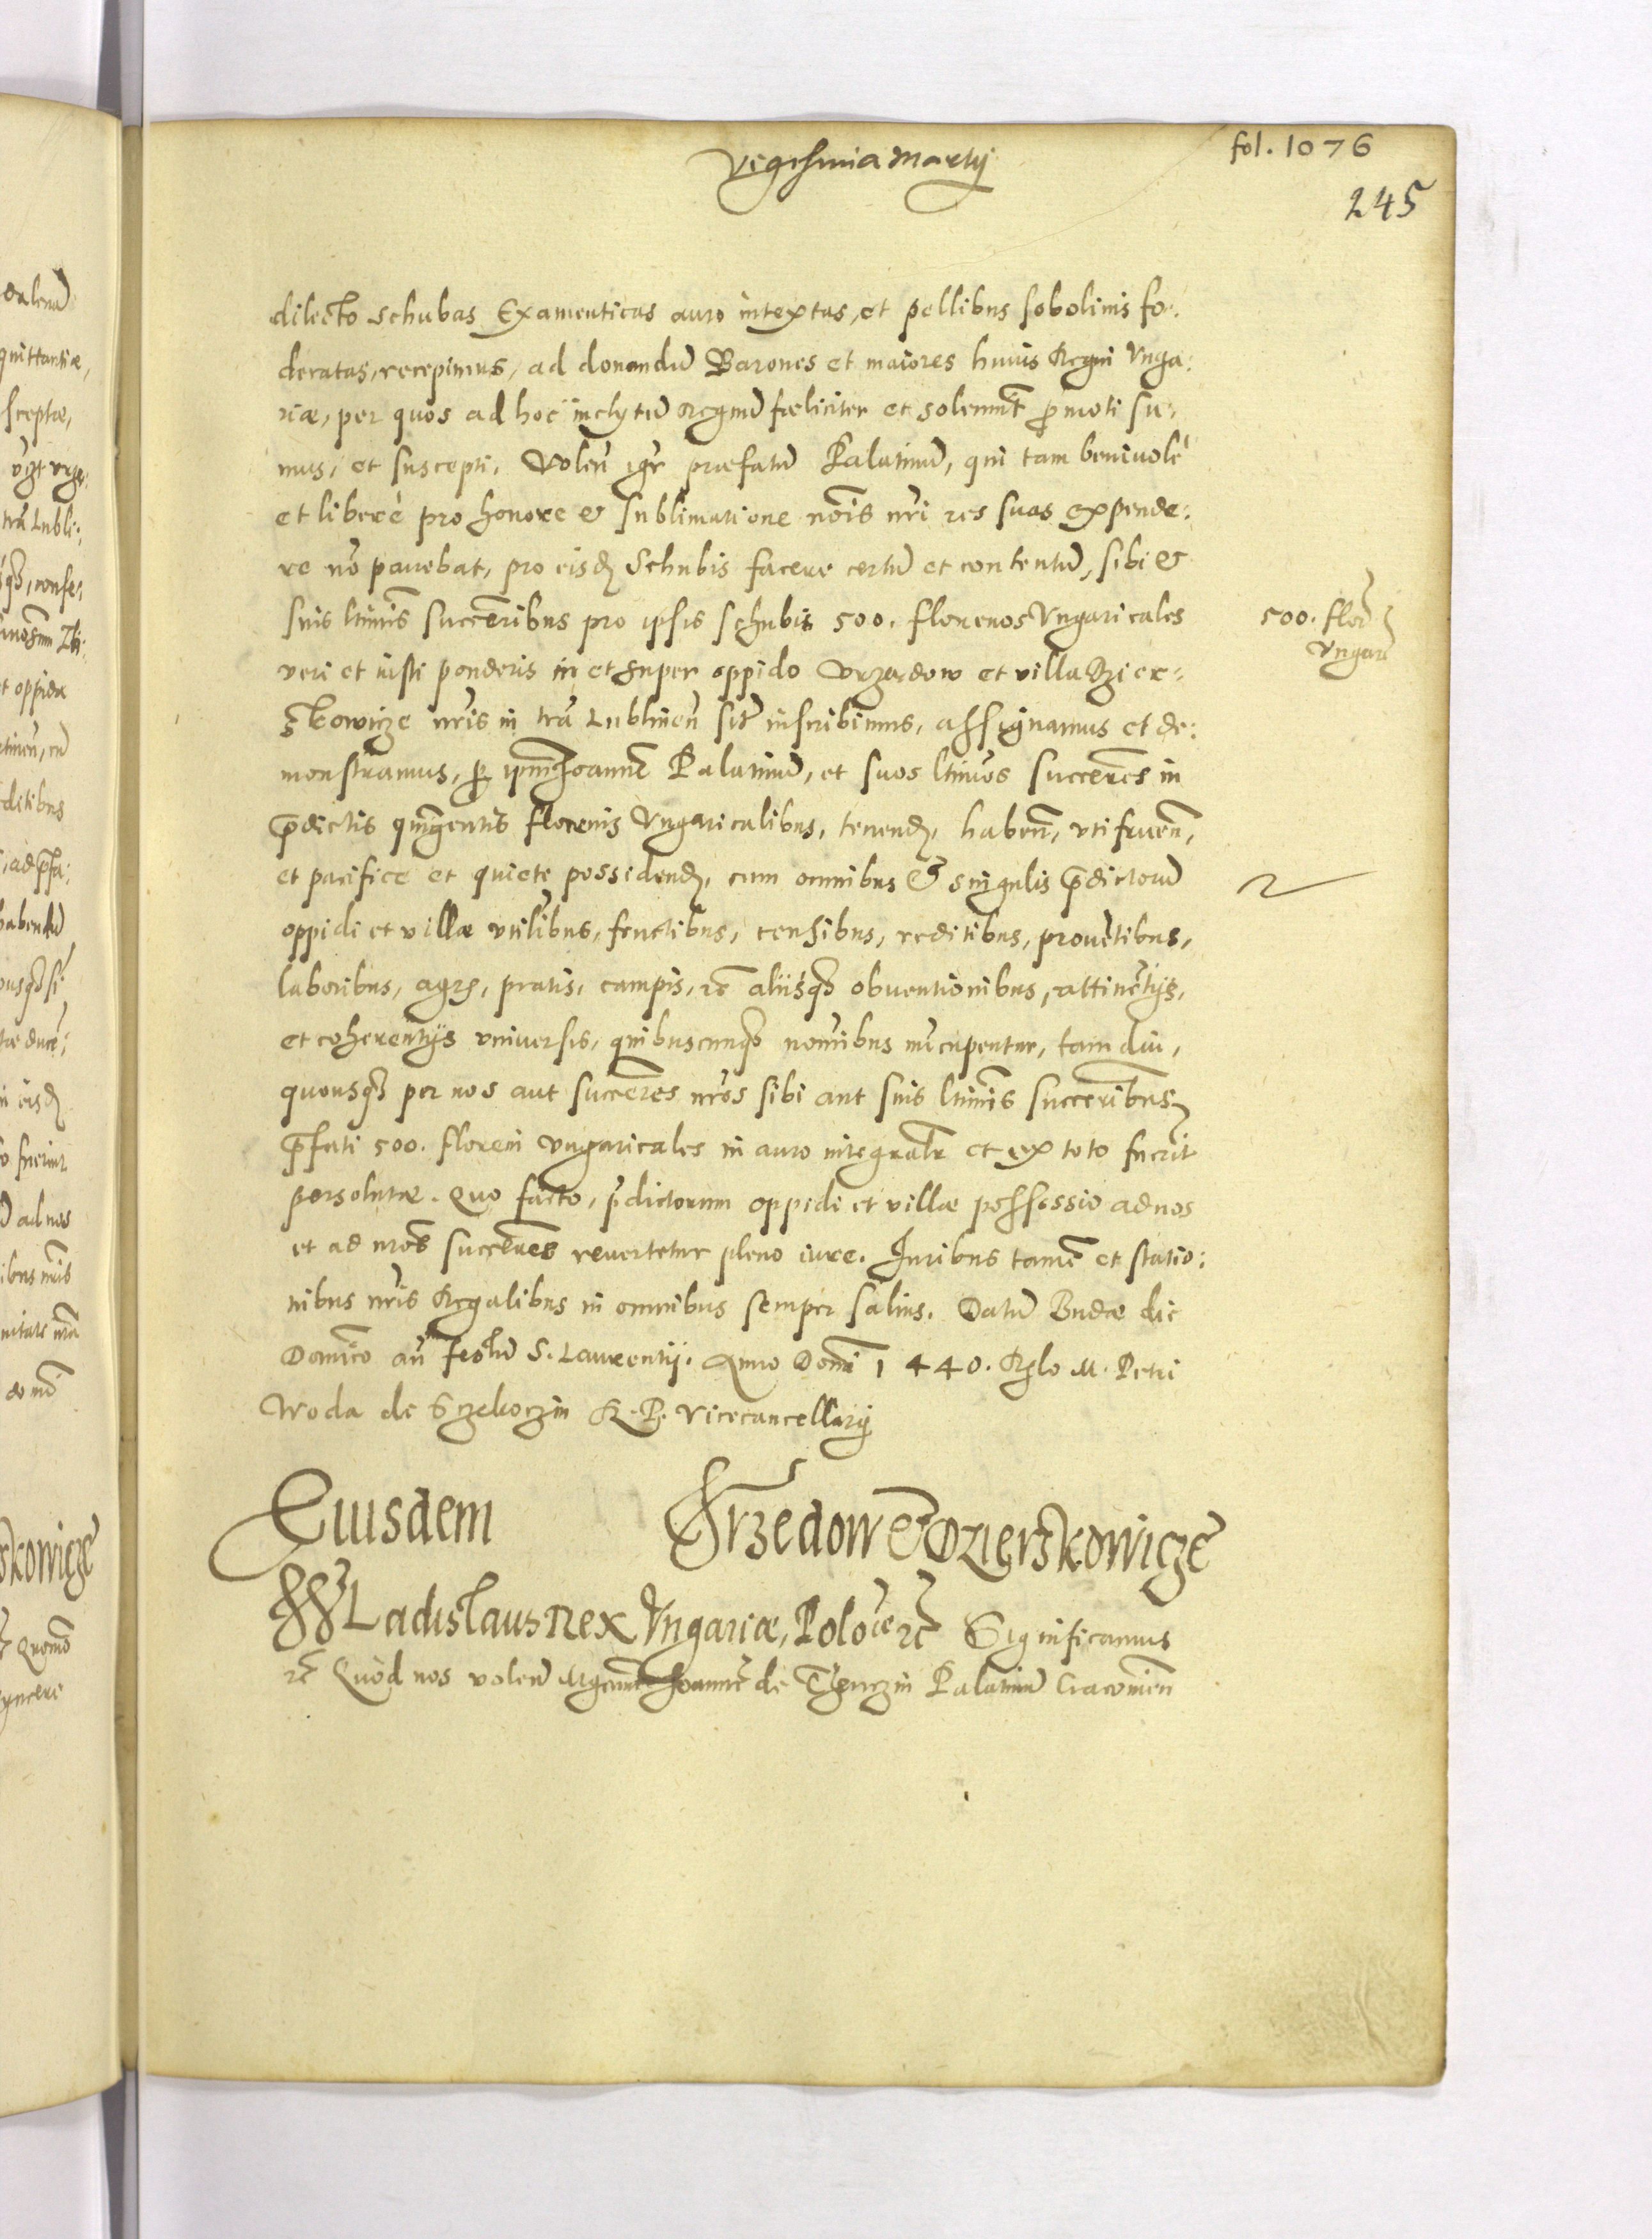 Vigesima Martij
fol. 1076
245
dilecto Schubas Examenticas auro intextas, et pellibus sobolinis fo-
deratas, recepimus, ad donandū Barones et maiores huius Regni Vnga:
riæ, per quos ad hoc inclytū Regnū fæliciter et solemnīt p̱moti su:
mus, et suscepti, Volen̄ igr̄ præfatū Palatinū, qui tam beniuole
et liberè pro honore & sublimatione nōis nr̄i res suas expende:
re nō pauebat, pro eisdꝫ Schubis facere certū et contentū, sibi &
suis ltimīs succēribus pro ipsis schubis 500. florenos Vngaricales
veri et iusti ponderis in et super oppido Vrzędow et villa Dzier=
zkowicze nr̄is in trā Lublinen̄ sit̄ inscribimus, assignamus et de:
monstramus, ꝑ ipm̄ Joannē Palatinū, et suos ltimos succēres in
p̄dictis quīngentis florenis Vngaricalibus, tenendꝫ, haben̄, vtifruen̄,
et pacifice et quiete possidendꝫ, cum omnibus & singulis p̄dictorū
oppidi et villæ vtilībus, fructibus, censibus, reditibus, prouētibus,
laboribus, agrꝭ, pratis, campis, &c̄ alijsqꝫ obuentionibus, attinētijs,
et coherentijs vniuersis, quibuscunqꝫ nomībus nūcupentur, tam diu,
quousqꝫ per nos aut succēres nr̄os sibi aut suis ltimīs succēribus
p̄fati 500. floreni Vngaricales in auro integralr̄ et ex toto fuerīt
persolutæ. Quo facto, p̄dictorum oppidi et villæ possessio ad nos
et ad nr̄os succēres reuertetur pleno iure. Juribus tamē et statio:
nibus nr̄is Regalibus in omnibus semper saluis. Datū Budæ die
Domīco an̄ festū S. Laurentij. Anno Domī 1440. Rel̄o M. Petri
Woda de Sczekoczin R. P. Vicecancellarij
500. flor̄
Vngar̄
Eiusdem Vrzedow & Dzierzkowicze
Wladislaus Rex Vngariæ, Poloīæ &c̄ Significamus
&c̄ Quòd nos volen̄ Mgcum̄ Joannē de Thenczin Palatinū Cracouien̄